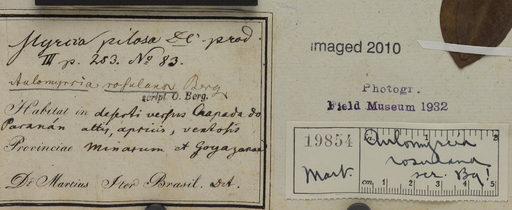 Myrcia pilosa DC prod.
III p. 253. No 83.
Aulomyrcia rosulans Berg
script. O. Berg.
Habitat in deserti versus Chapada do
Paranan altis, apricis, ventosis
Provinciae Minarum et Goyazanae
Dr Martius Iter Brasil. &t.
imaged 2010
Photogr.
Field Museum 1932
19854
Mart.
Aulomyrcia
rosulans
scr. Bg!
cm. 1 2 3 4 5